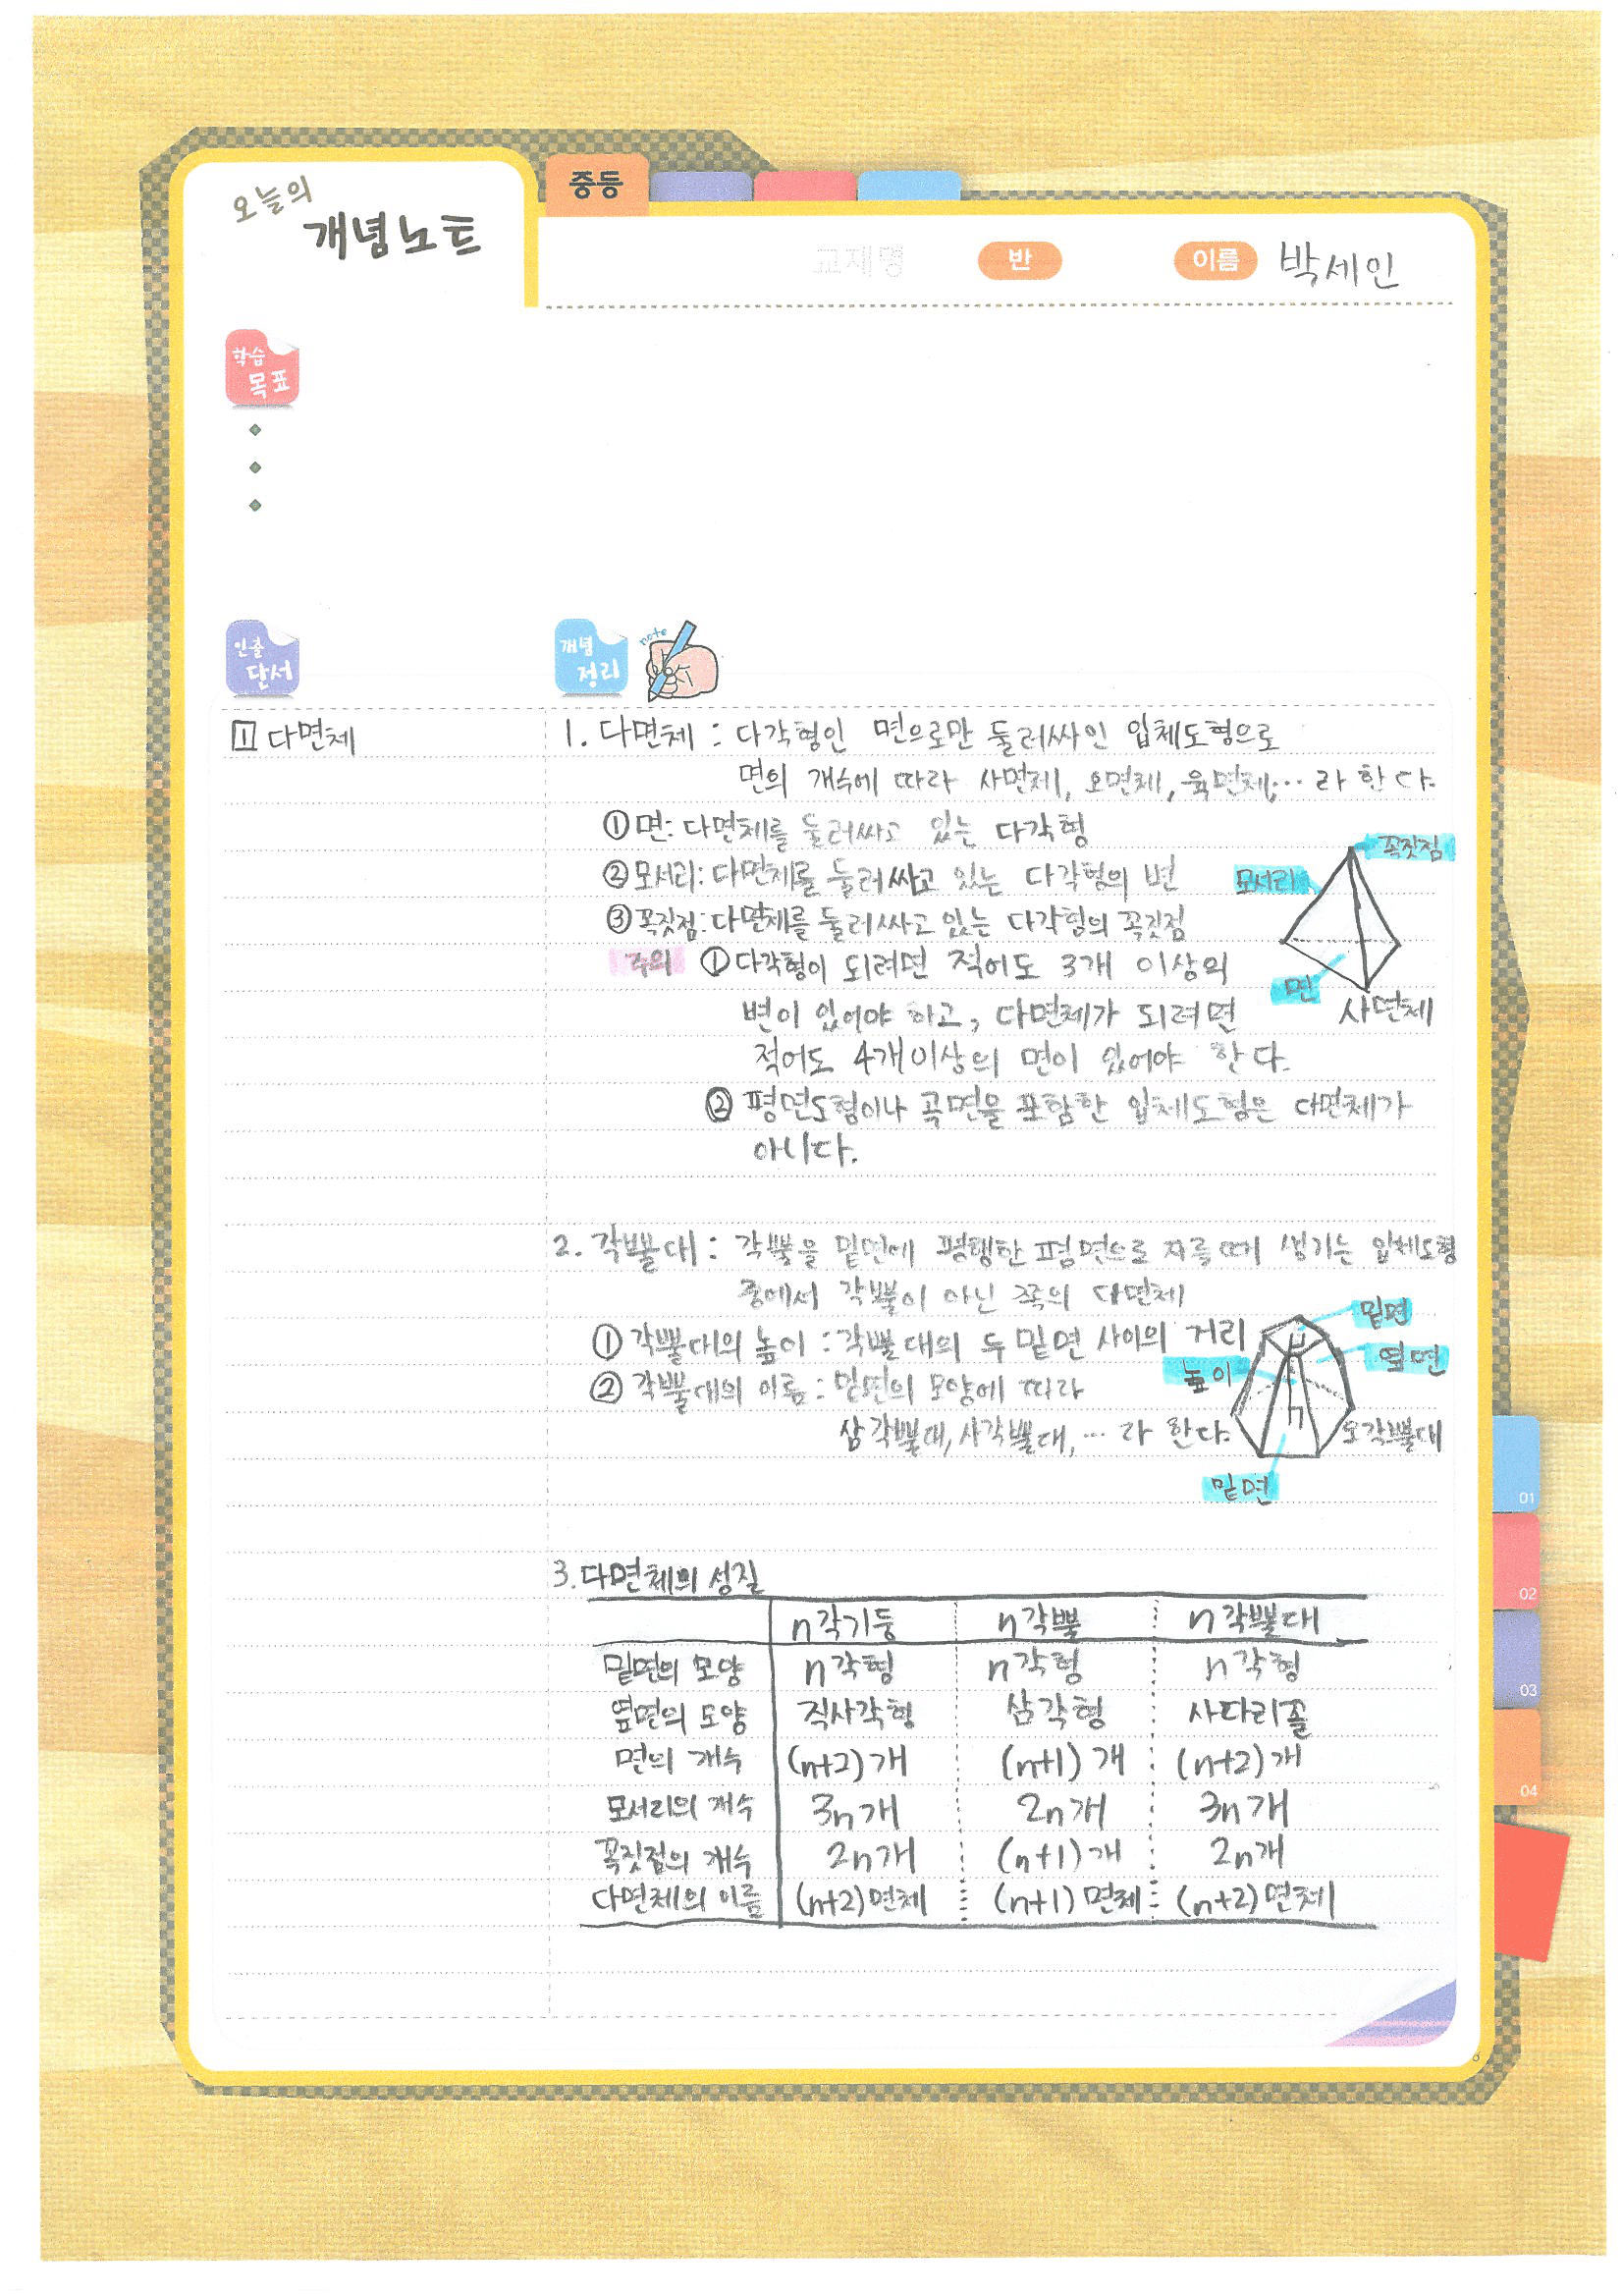 오늘의
개념노트
중등
교재명 반 이름 박세인
학습
목표
인출
단서
개념
정리
note
1 다면체
1. 다면체 : 다각형인 면으로만 둘러싸인 입체도형으로
면의 개수에 따라 사면체, 오면체, 육면체, … 라 한다.
① 면: 다면체를 둘러싸고 있는 다각형
② 모서리: 다면체를 둘러싸고 있는 다각형의 변
③ 꼭짓점: 다면체를 둘러싸고 있는 다각형의 꼭짓점
꼭짓점
모서리
면
사면체
주의 ① 다각형이 되려면 적어도 3개 이상의
변이 있어야 하고, 다면체가 되려면
적어도 4개이상의 면이 있어야 한다.
② 평면도형이나 곡면을 포함한 입체도형은 다면체가
아니다.
2. 각뿔대 : 각뿔을 밑면에 평행한 평면으로 자를 때 생기는 입체도형
중에서 각뿔이 아닌 쪽의 다면체
① 각뿔대의 높이 : 각뿔대의 두 밑면 사이의 거리
② 각뿔대의 이름 : 밑면의 모양에 따라
삼각뿔대, 사각뿔대, … 라 한다.
밑면
옆면
높이
오각뿔대
밑면
01
02
03
04
3. 다면체의 성질
n각기둥 n각뿔 n각뿔대
밑면의 모양 n각형 n각형 n각형
옆면의 모양 직사각형 삼각형 사다리꼴
면의 개수 (n+2)개 (n+1)개 (n+2)개
모서리의 개수 3n개 2n개 3n개
꼭짓점의 개수 2n개 (n+1)개 2n개
다면체의 이름 (n+2)면체 (n+1)면체 (n+2)면체